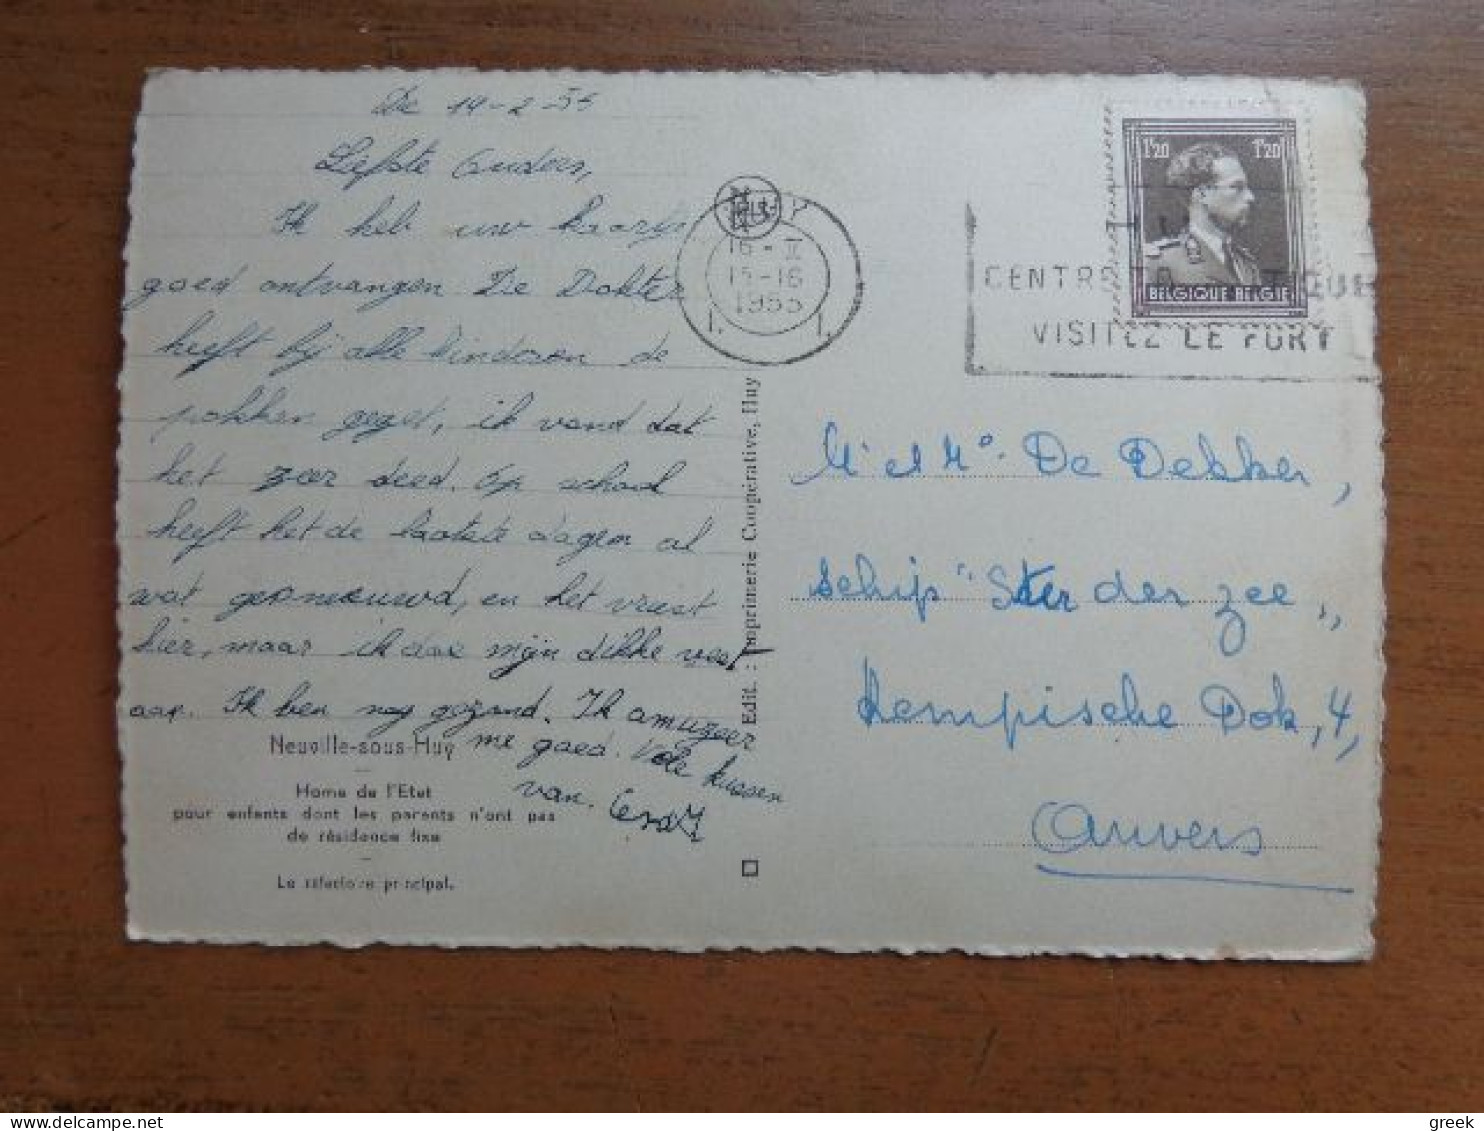 De 14-2-55
Liefste Ouders,
Ik heb uw kaartje
goed ontvangen De Dokter
heeft bij alle kinderen de
pokken gezet, ik vond dat
het zeer deed. Op school
heeft het de laatste dagen al
wat gesneeuwd, en het vriest
hier, maar ik doe mijn dikke vest
aan. Ik ben nog gezond. Ik amuzeer
me goed. Vele kussen
van.
Neuville-sous-Huy
Home de l'Etat
pour enfants dont les parents n'ont pas
de résidence fixe
Le réfectoire principal.
Edit. : Imprimerie Coopérative, Huy
HUY
16 - II
15-16
1955
1. 1.
1F20 1F20
BELGIQUE BELGIE
CENTRE TOURISTIQUE
VISITEZ LE FORT
Mr et Me. De Dekker,
schip "Ster der zee",
Kempische Dok, 4,
Anvers
greek